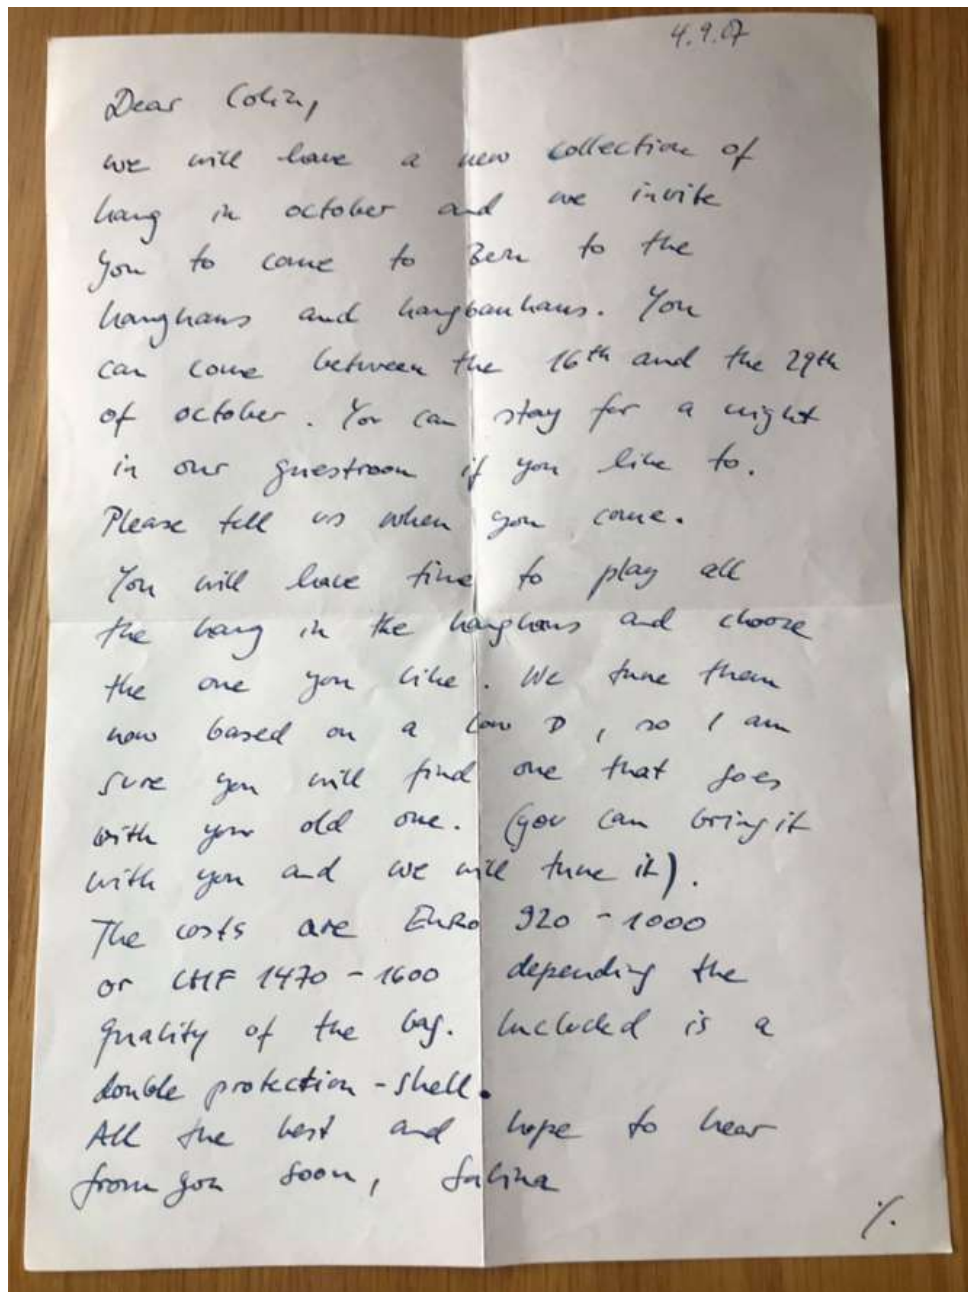 4.9.07
Dear Colin,
we will have a new collection of
hang in october and we invite
You to come to Bern to the
hanghaus and hangbauhaus. You
can come between the 16th and the 29th
of october. You can stay for a night
in our guestroom if you like to.
Please tell us when you come.
You will have time to play all
the hang in the hanghaus and choose
the one you like. We tune them
now based on a low D, so I am
sure you will find one that goes
with your old one. (you can bring it
with you and we will tune it).
The costs are Euro 920 - 1000
or CHF 1470 - 1600 depending the
quality of the bag. Included is a
double protection - shell.
All the best and hope to hear
from you soon, Sabina
./.